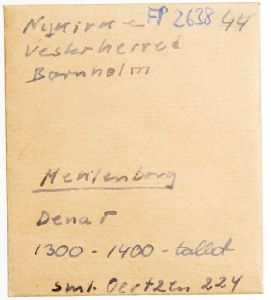 Nykirke FP 2638 44
Vesterherred
Bornholm
Meklenborg
Denar
1300 - 1400 - tallet
sml. Oertzen 224